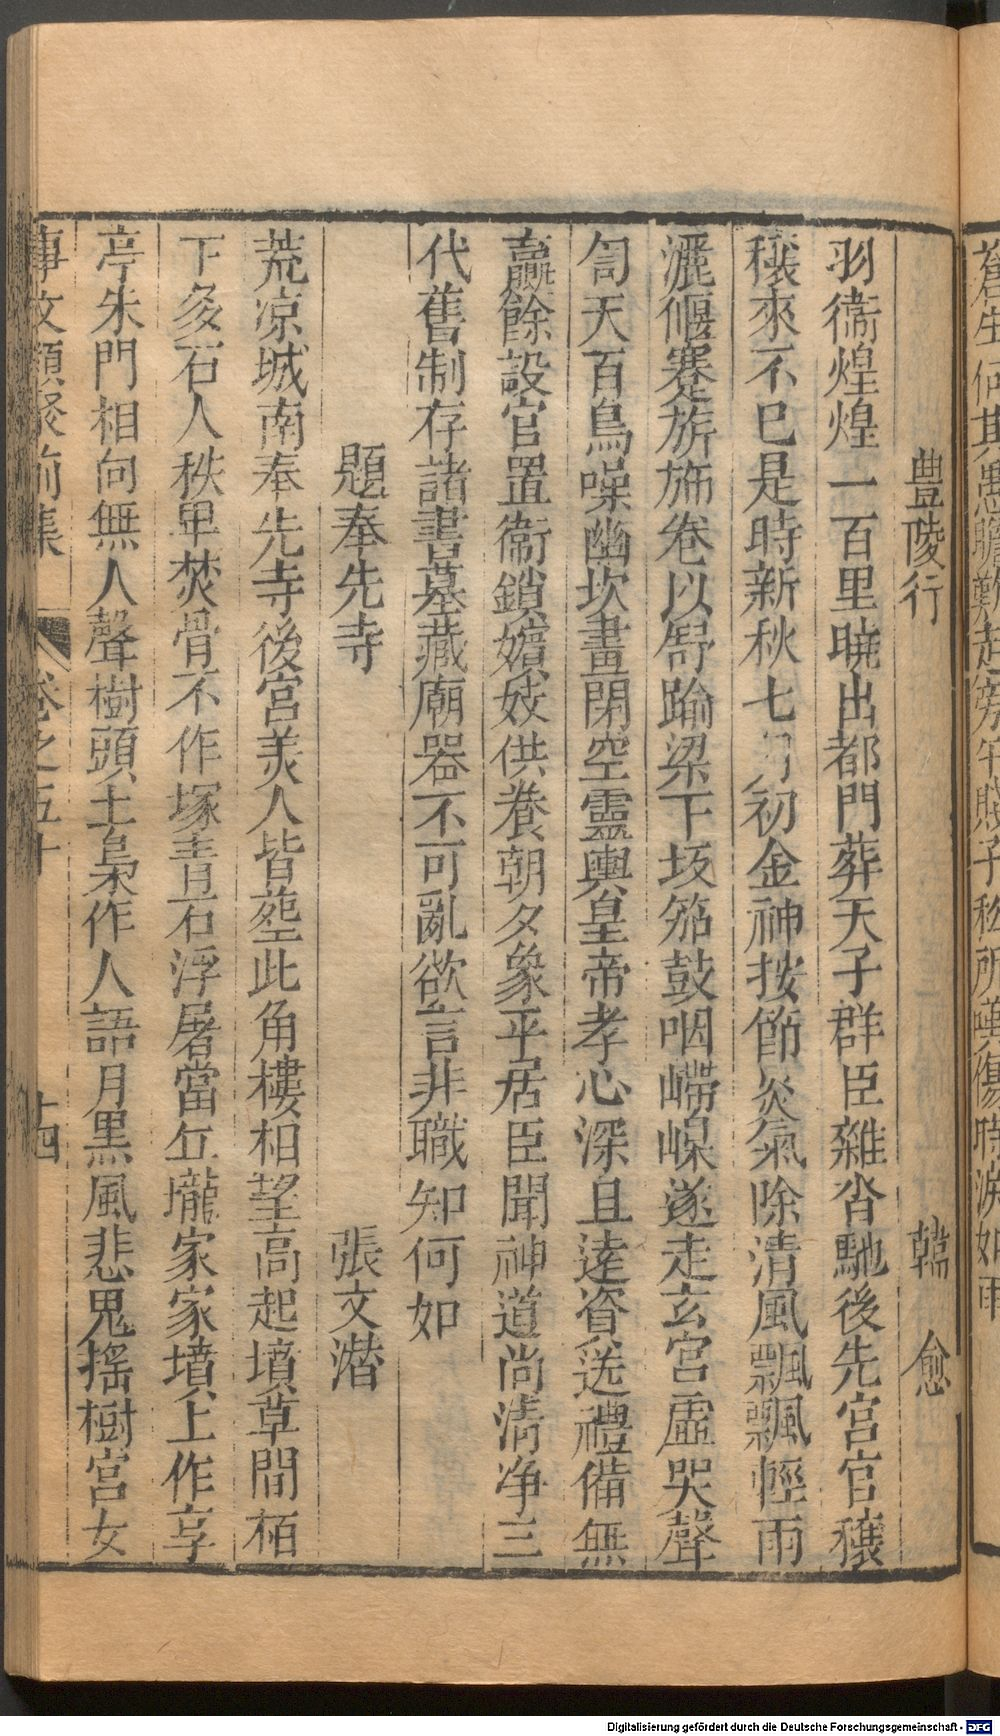 蒼生何其愚瞻難起旁午賜子稔所嘆傷時淚如雨
豊陵行　韓　愈
羽衞煌煌一百里曉出都門葬天子群臣雜沓馳後先宮官穰
穰來不巳是時新秋七月初金神按節炎氣除清風飄飄輕雨
灑偃蹇旂旆卷以舒踰梁下坂笳鼓咽嵽嵲遂走玄宮虛哭聲
訇天百鳥噪幽坎晝閉空靈輿皇帝孝心深且遠資送禮備無
贏餘設官置衞鎖嬪妓供養朝夕象平居臣聞神道尚清净三
代舊制存諸書墓藏廟器不可亂欲言非職知何如
題奉先寺　張文潛
荒凉城南奉先寺後宮羙人皆塟此角樓相望高起墳草間栢
下多石人秩卑焚骨不作塚青石浮屠當丘壠家家墳上作享
亭朱門相向無人聲樹頭土梟作人語月黒風悲鬼搖樹宮女
事文類聚前集　卷之五十　十四
Digitalisierung gefördert durch die Deutsche Forschungsgemeinschaft - DFG